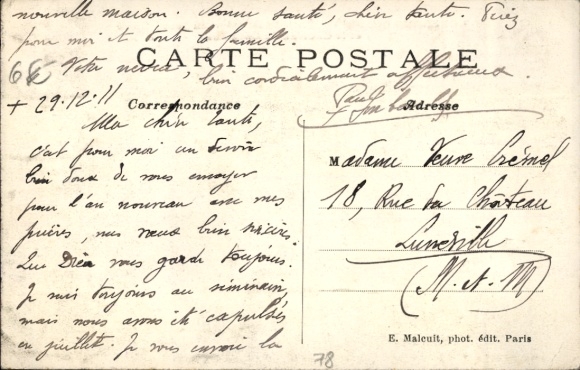 nouvelle maison. Bonne santé, chère tante. Priez
pour moi et toute la famille.
Votre neveu, bien cordialement affectueux.
CARTE POSTALE
68
+ 29.12.11
Correspondance
Adresse
Paul
Ma chère tante,
c'est pour moi un devoir
bien doux de vous envoyer
pour l'an nouveau avec mes
prières, mes vœux bien sincères.
Que Dieu vous garde toujours.
Je suis toujours au séminaire,
mais nous avons été expulsés
en juillet. Je vous envoie la
Madame Veuve Crésnel
18, Rue du Château
Lunéville
(M. & M)
E. Malcuit, phot. édit. Paris
78